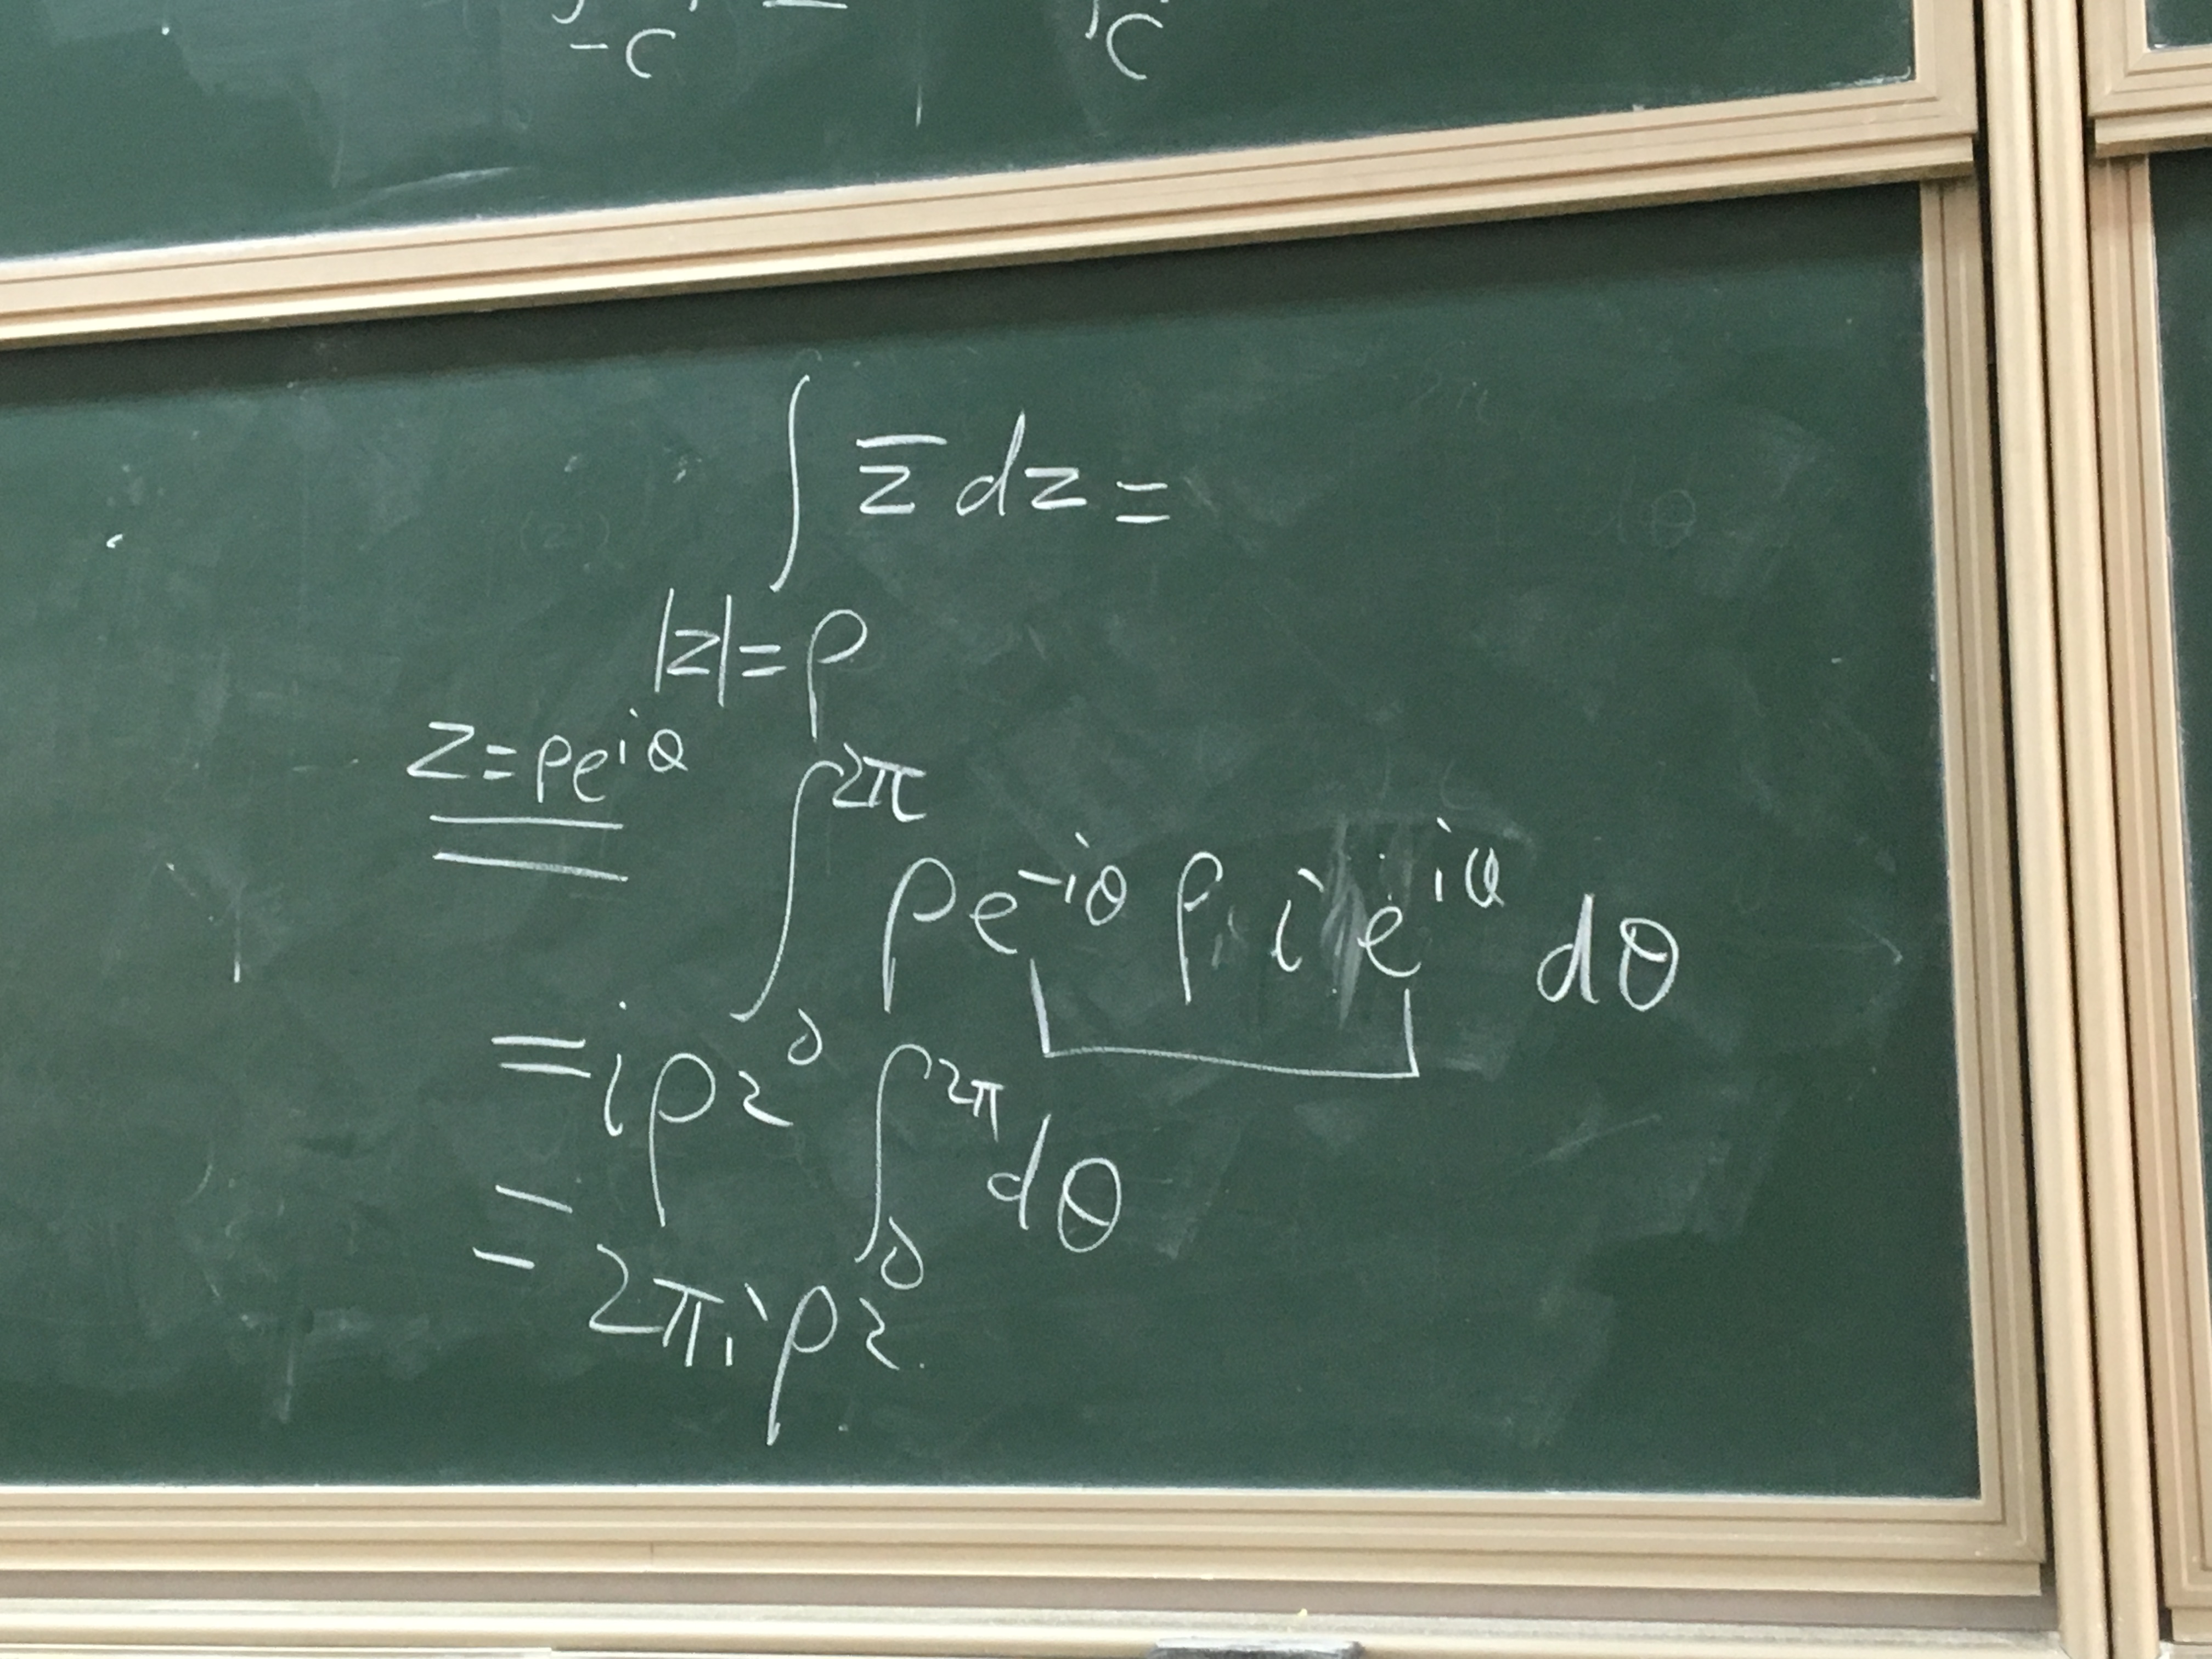 -C C
∫ z̅ dz =
|z|=ρ
z=ρe^{iθ}
∫_0^{2π} ρe^{-iθ} ρ i e^{iθ} dθ
= iρ² ∫_0^{2π} dθ
= 2πiρ².